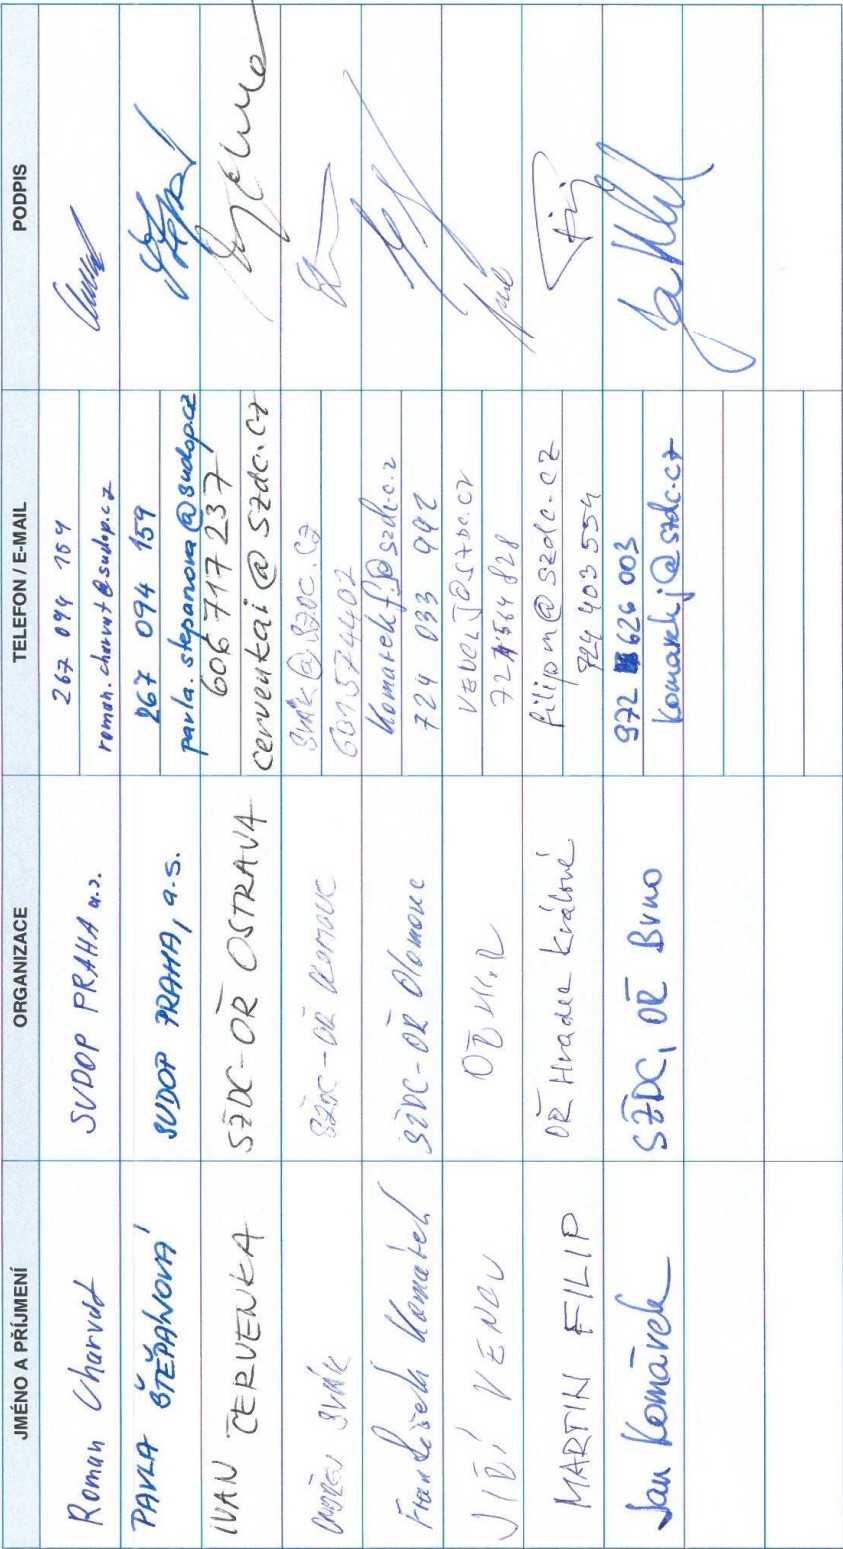 JMÉNO A PŘÍJMENÍ ORGANIZACE TELEFON / E-MAIL PODPIS
Roman Charvát SUDOP PRAHA a.s. 267 094 164
roman.charvat@sudop.cz
PAVLA ŠTĚPÁNOVÁ SUDOP PRAHA, a.s. 267 094 159
pavla.stepanova@sudop.cz
IVAN ČERVENKA SŽDC-OŘ OSTRAVA 606 717 237
cervenkai@szdc.cz
SŽDC-OŘ Olomouc
601574402
František Komárek SŽDC-OŘ Olomouc komarekf@szdc.cz
724 033 992
JIŘÍ OŘ H.K.
MARTIN FILIP OŘ Hradec Králové filipm@szdc.cz
724 403 554
Jan Komárek SŽDC, OŘ Brno 972 626 003
komarekj@szdc.cz